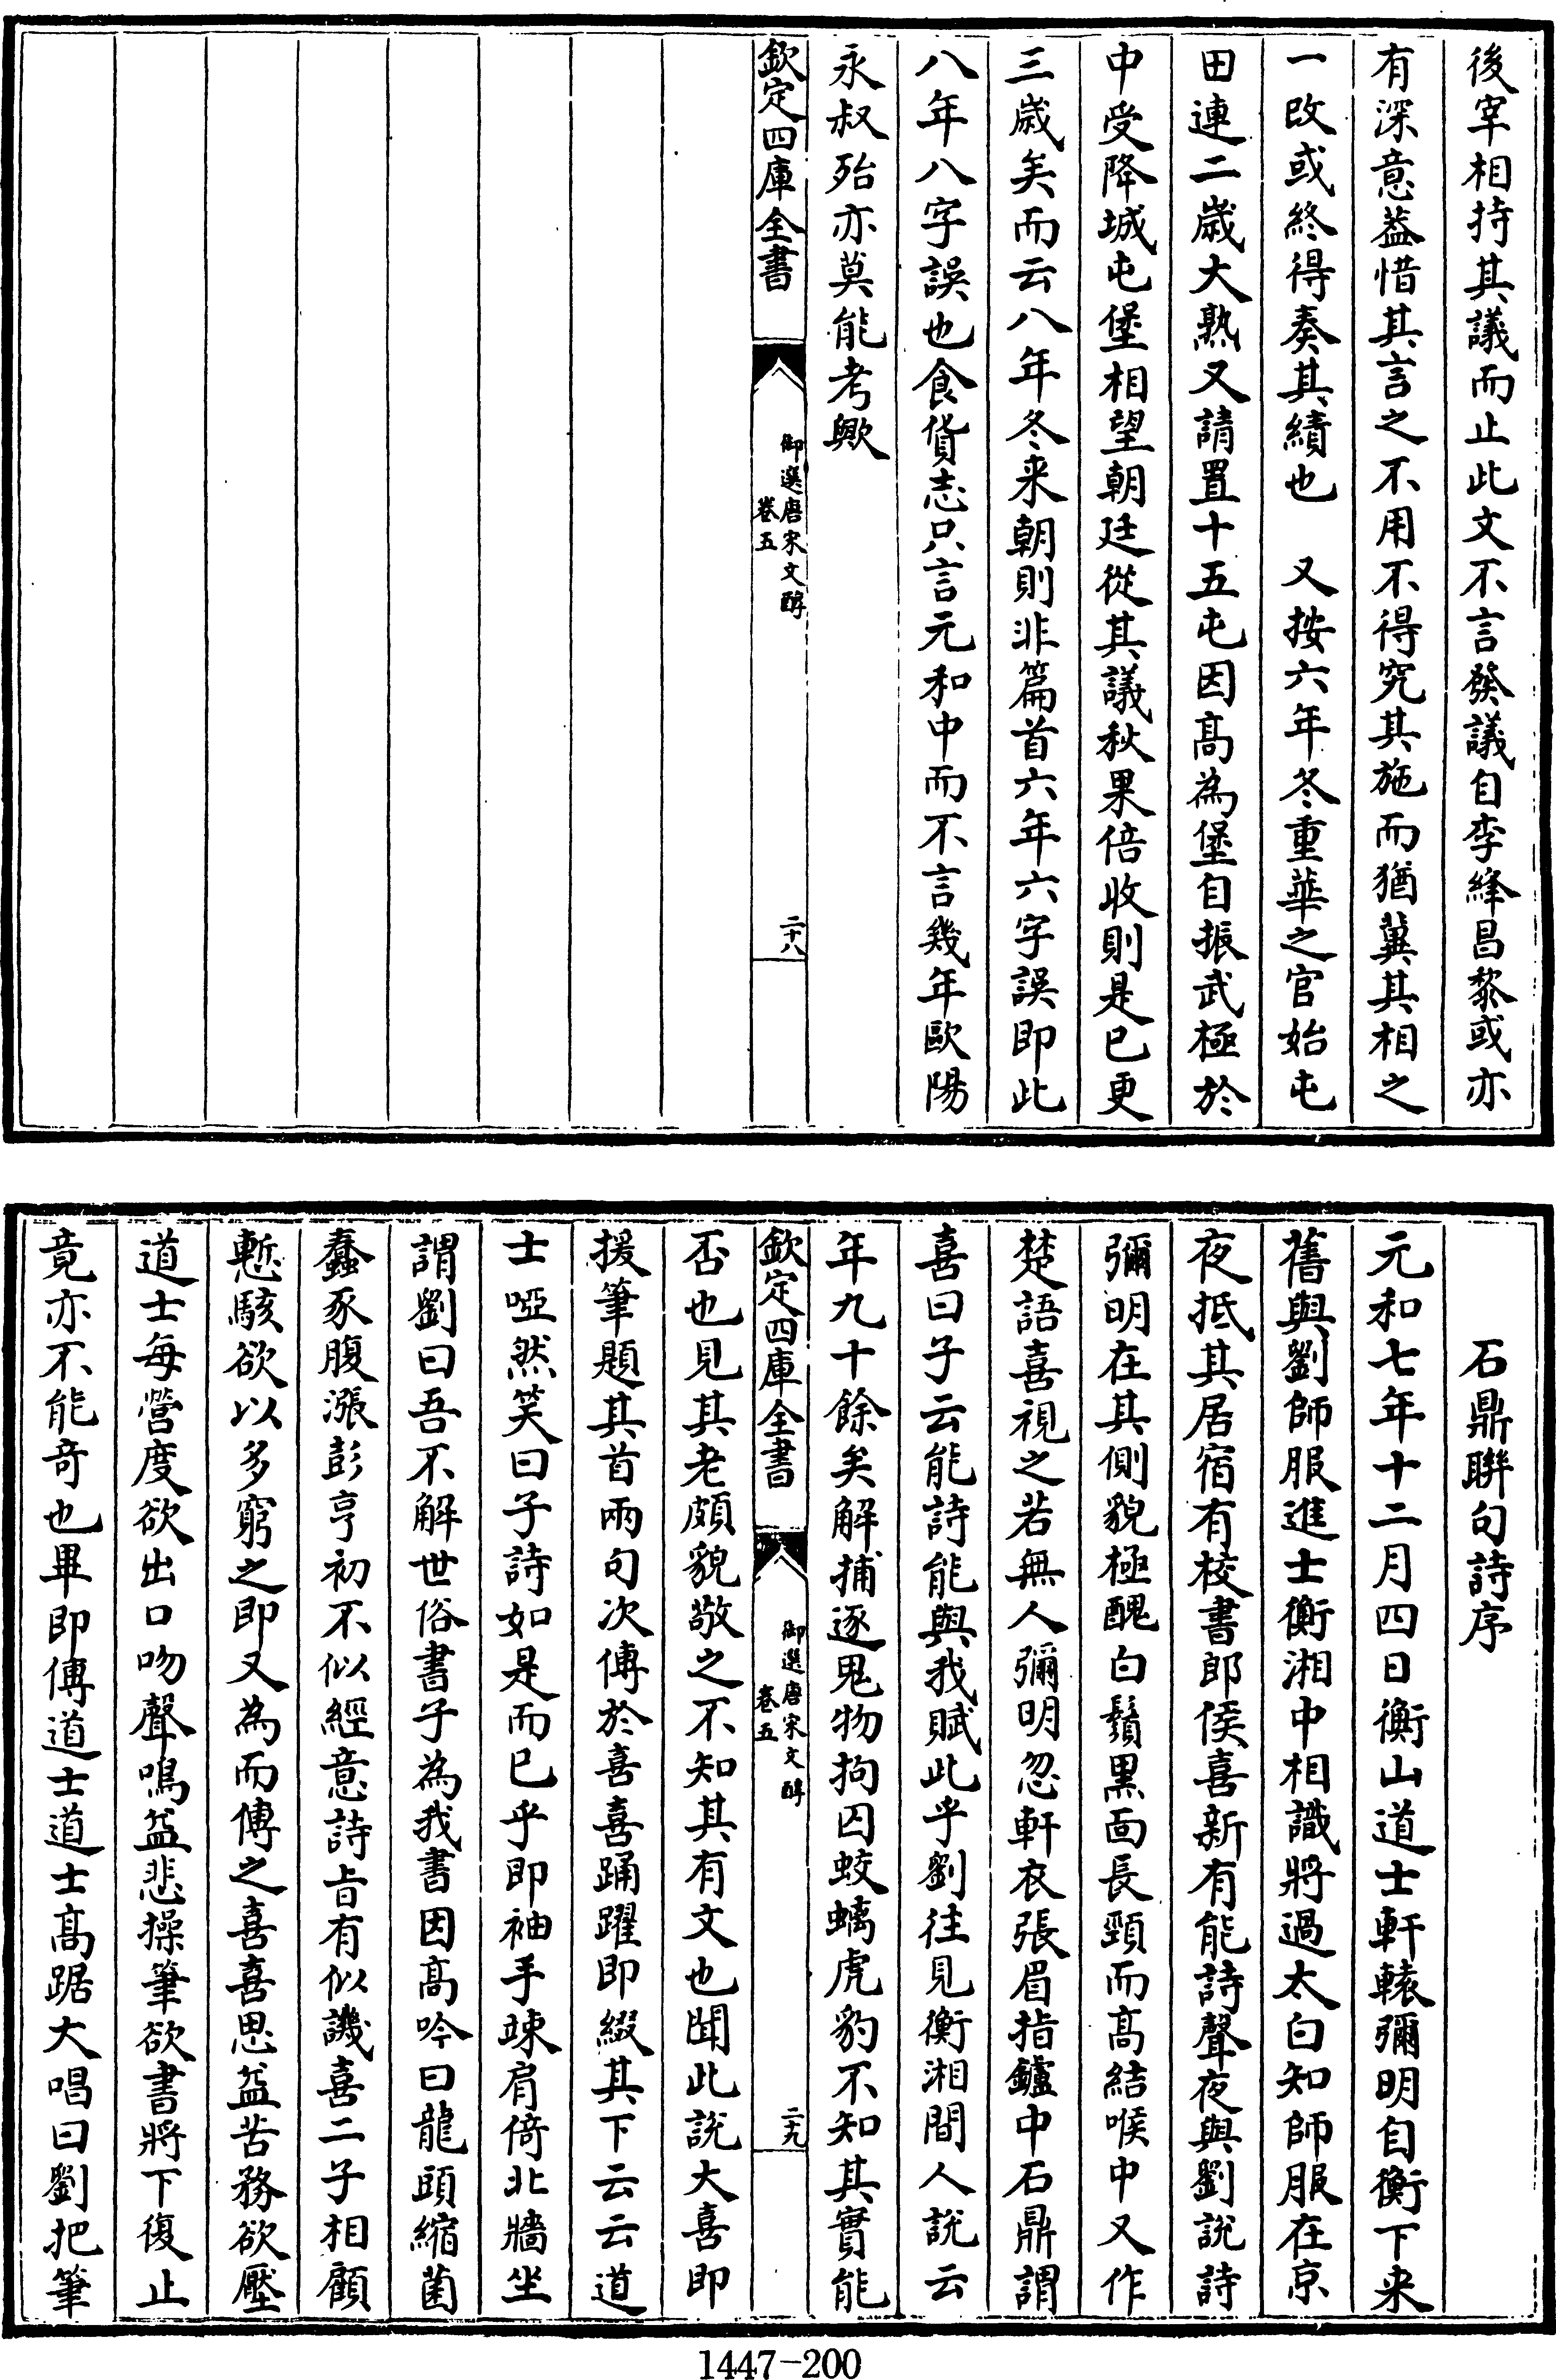 後宰相持其議而止此文不言發議自李絳昌黎或亦
有深意葢惜其言之不用不得究其施而猶冀其相之
一改或終得奏其績也　又按六年冬重華之官始屯
田連二歲大熟又請置十五屯因髙為堡自振武極於
中受降城屯堡相望朝廷從其議秋果倍收則是已更
三歲矣而云八年冬来朝則非篇首六年六字誤即此
八年八字誤也食貨志只言元和中而不言幾年歐陽
永叔殆亦莫能考歟
欽定四庫全書
御選唐宋文醇
卷五
二十八
石鼎聯句詩序
元和七年十二月四日衡山道士軒轅彌明自衡下来
舊與劉師服進士衡湘中相識將過太白知師服在京
夜抵其居宿有校書郎侯喜新有能詩聲夜與劉說詩
彌明在其側貌極醜白鬚黒面長頸而髙結喉中又作
楚語喜視之若無人彌明忽軒衣張眉指鑪中石鼎謂
喜曰子云能詩能與我賦此乎劉往見衡湘間人說云
年九十餘矣解捕逐鬼物拘囚蛟螭虎豹不知其實能
欽定四庫全書
御選唐宋文醇
卷五
二十九
否也見其老頗貌敬之不知其有文也聞此說大喜即
援筆題其首兩句次傅於喜喜踊躍即綴其下云云道
士啞然笑曰子詩如是而已乎即袖手竦肩倚北牆坐
謂劉曰吾不解世俗書子為我書因髙吟曰龍頭縮菌
蠢豕腹漲彭亨初不似經意詩旨有似譏喜二子相顧
慙駭欲以多窮之即又為而傅之喜喜思益苦務欲壓
道士每營度欲出口吻聲鳴益悲操筆欲書將下復止
竟亦不能奇也畢即傅道士道士髙踞大唱曰劉把筆
1447-200